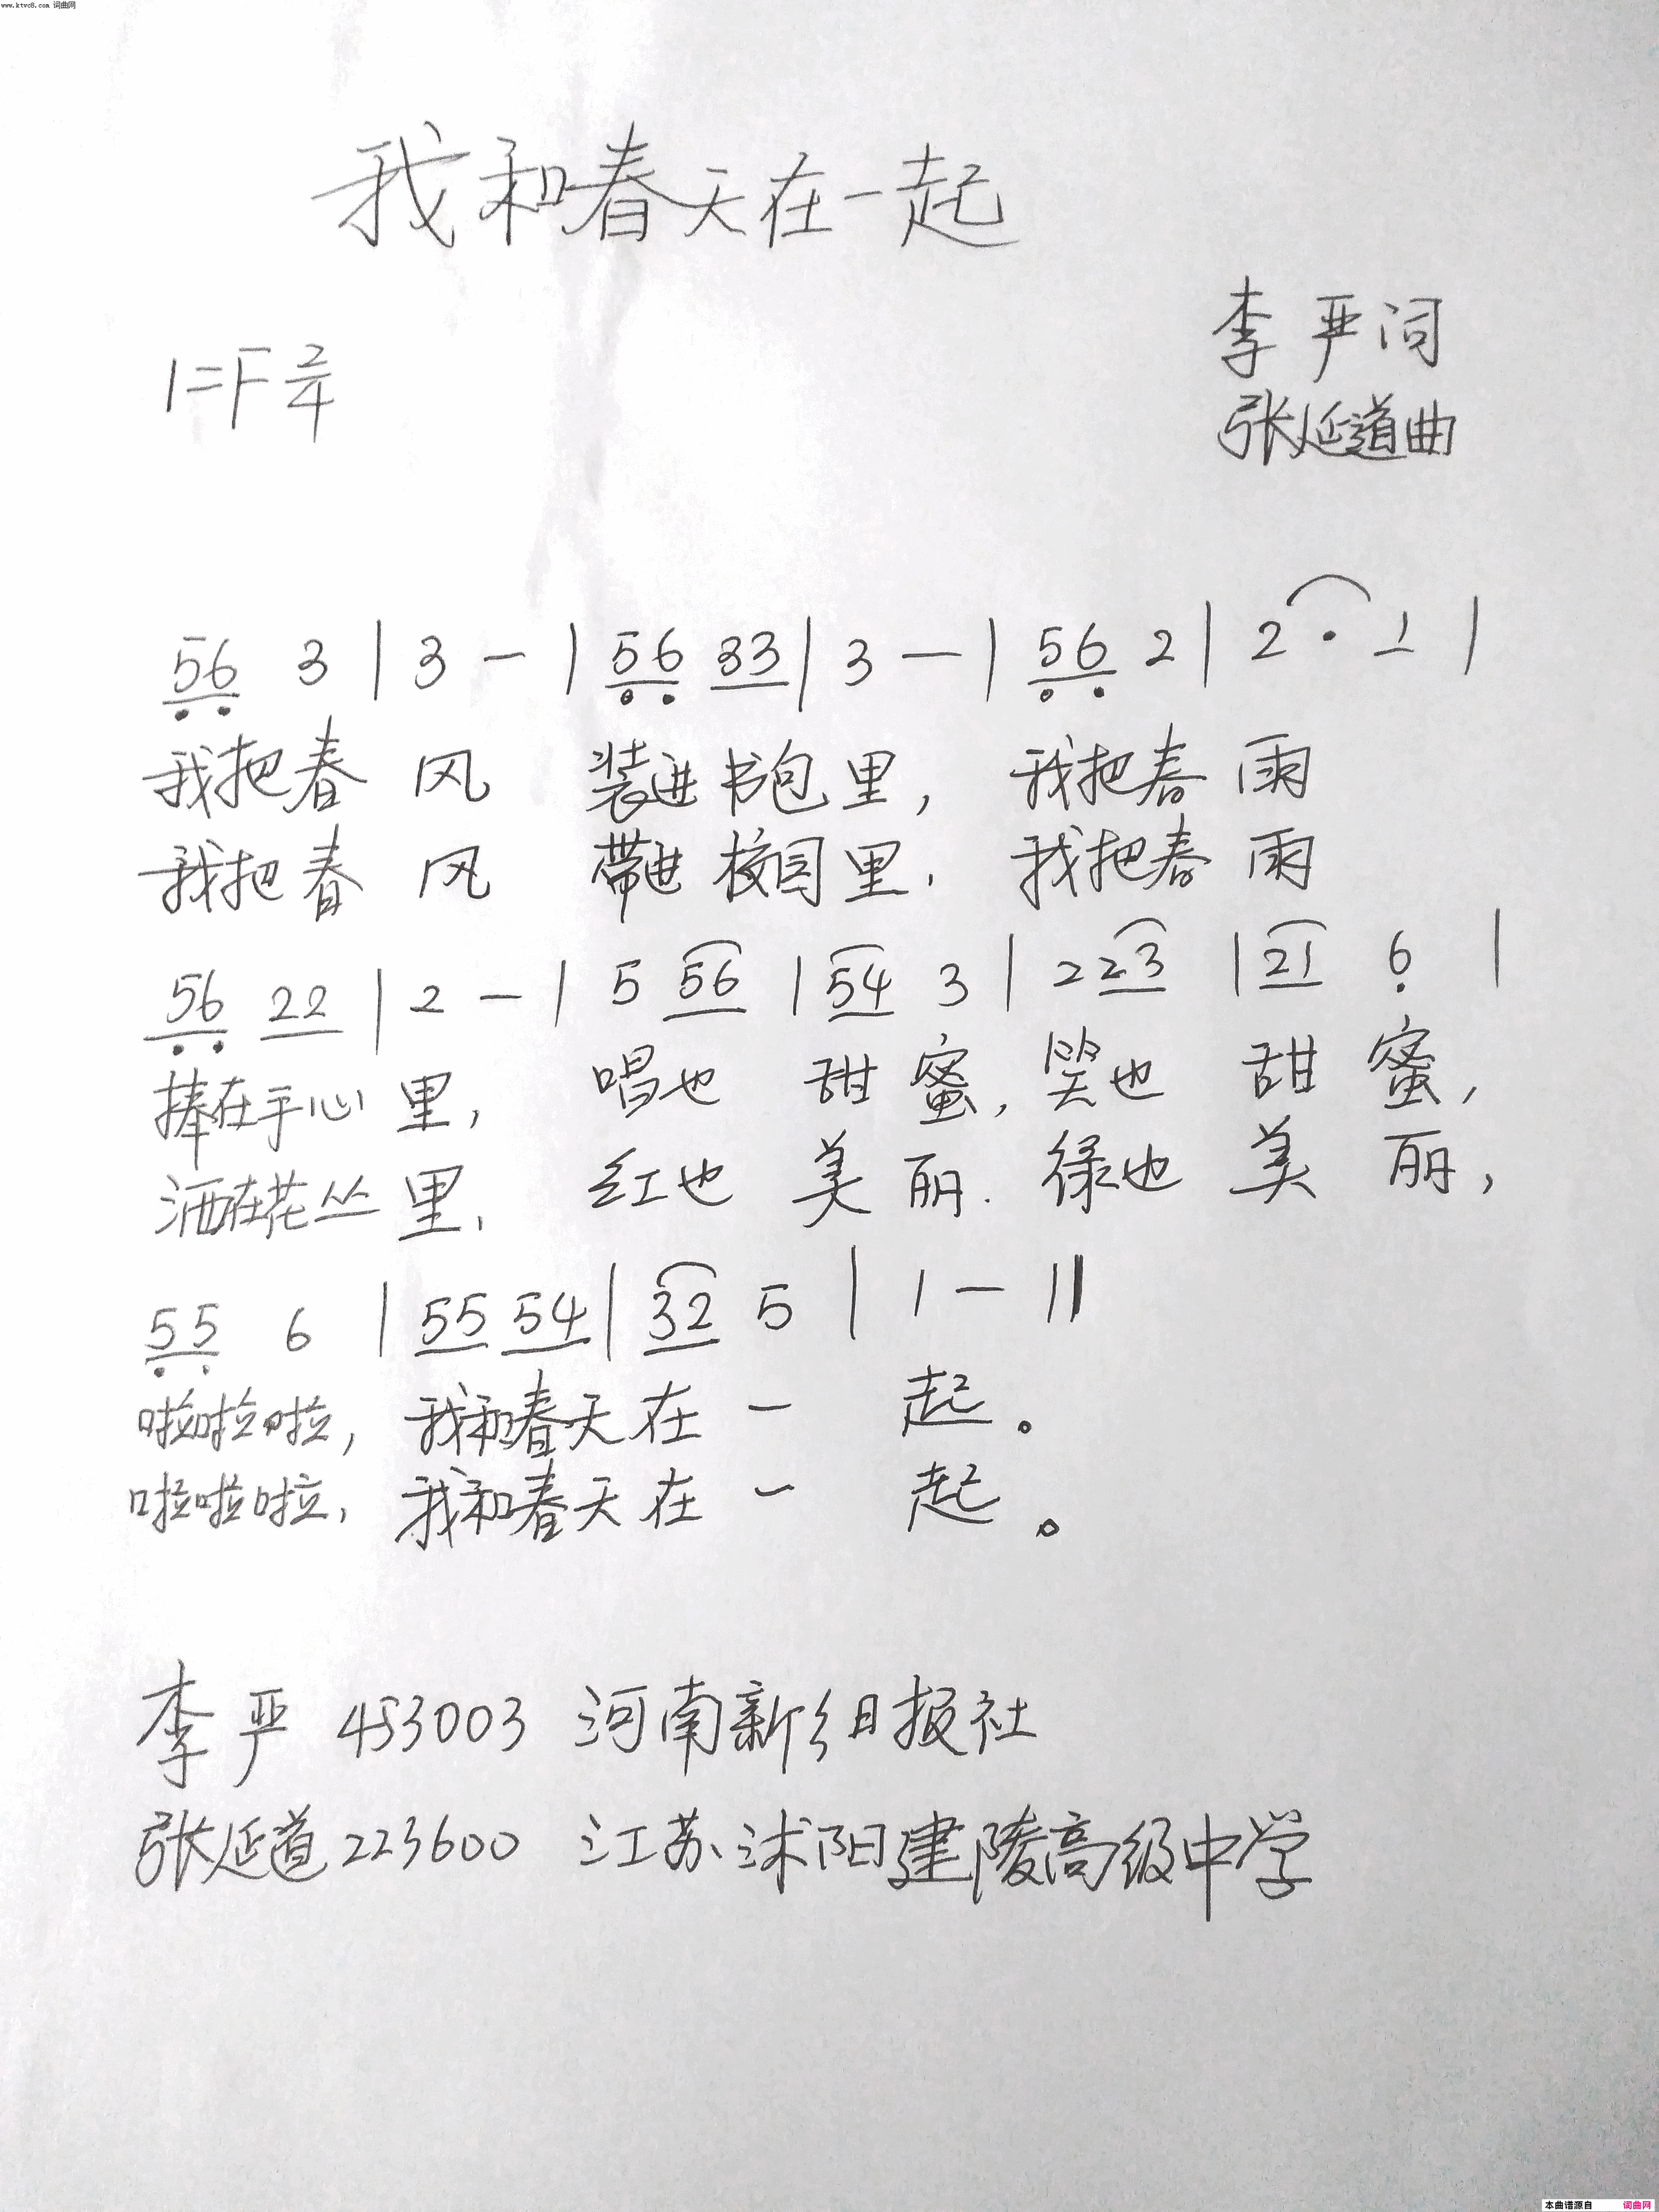 www.ktvc8.com 词曲网
我和春天在一起
李严词
1=F 2/4
张延道曲
56 3 | 3 — | 56 33 | 3 — | 56 2 | 2 · 1 |
我把春 风 装进书包里, 我把春 雨
我把春 风 带进校园里, 我把春 雨
56 22 | 2 — | 5 56 | 54 3 | 2 23 | 21 6 |
捧在手心里, 唱也 甜蜜, 笑也 甜 蜜,
洒在花丛里, 红也 美丽. 绿也 美 丽,
55 6 | 55 54 | 32 5 | 1 — ‖
啦啦啦, 我和春天在 一 起。
啦啦啦, 我和春天在 一 起。
李严 453003 河南新乡日报社
张延道 223600 江苏沭阳建陵高级中学
本曲谱源自 词曲网